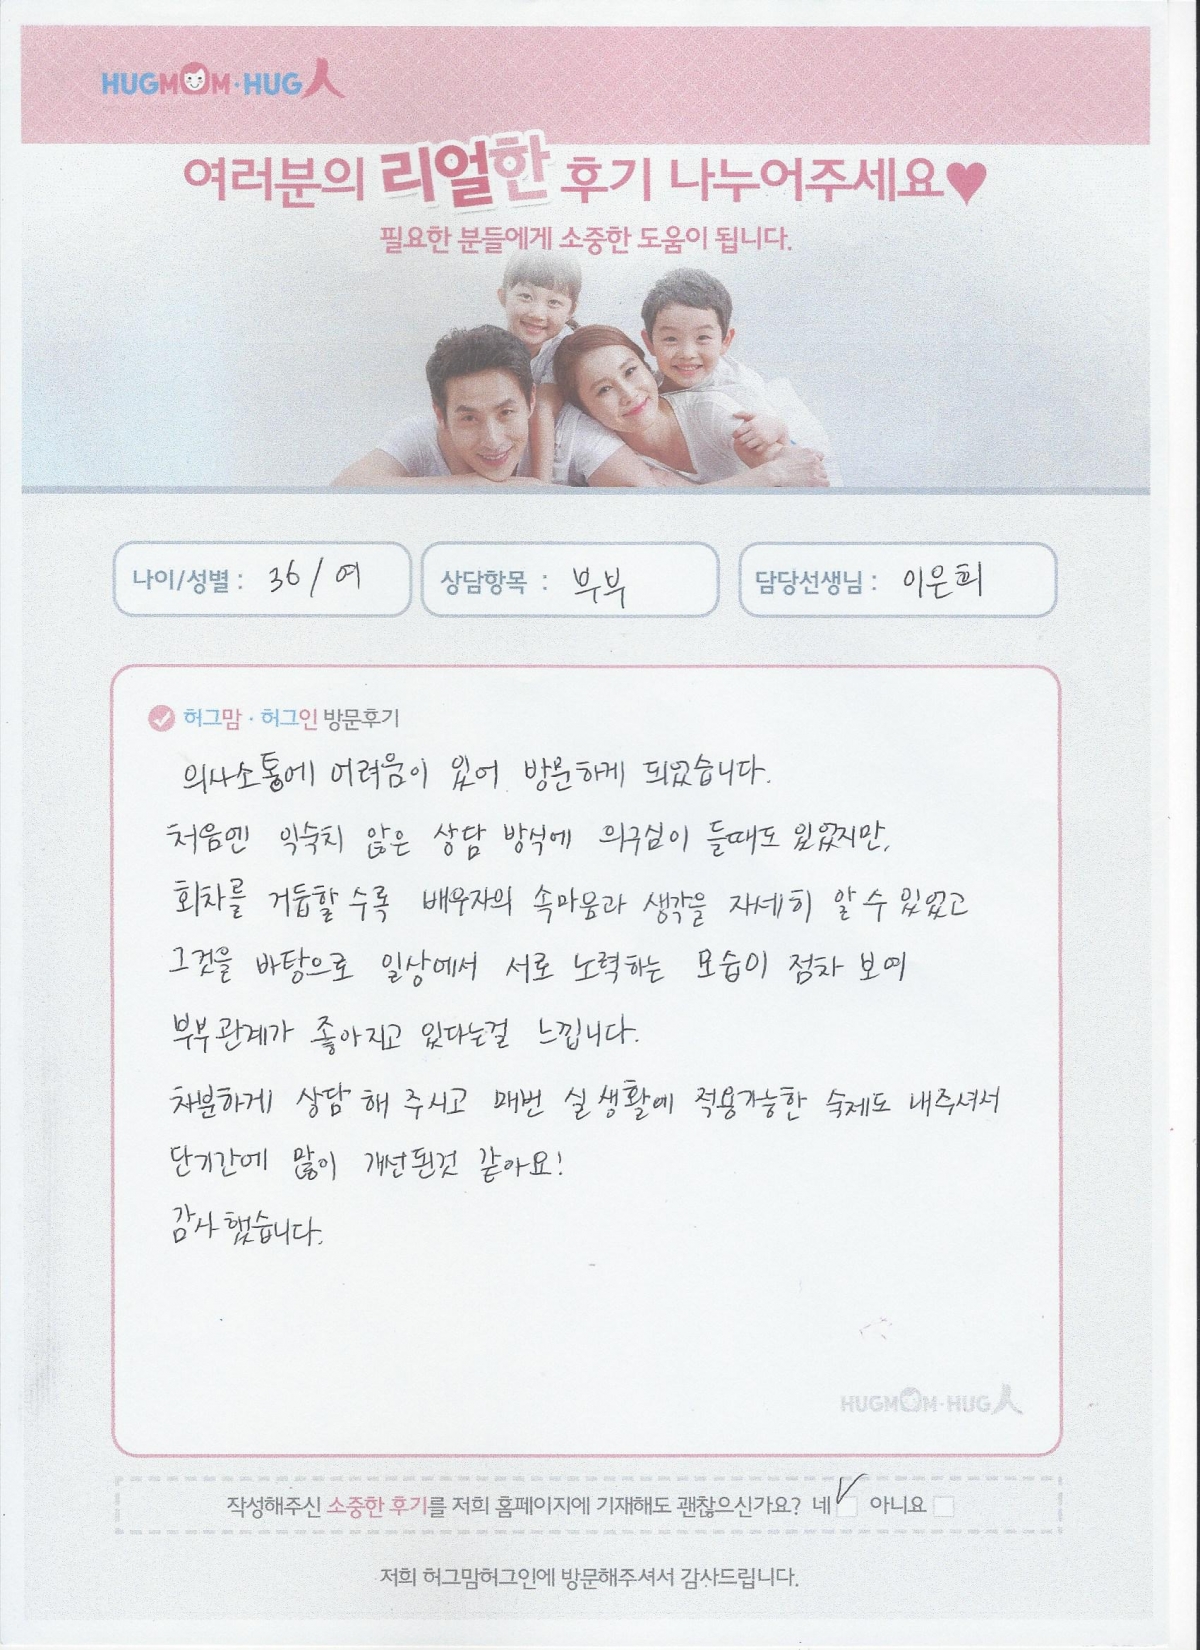 HUGMOM·HUG人
여러분의 리얼한 후기 나누어주세요♥
필요한 분들에게 소중한 도움이 됩니다.
나이/성별 : 36 / 여
상담항목 : 부부
담당선생님 : 이은희
허그맘 · 허그인 방문후기
의사소통에 어려움이 있어 방문하게 되었습니다.
처음엔 익숙치 않은 상담 방식에 의구심이 들때도 있었지만,
회차를 거듭할수록 배우자의 속마음과 생각을 자세히 알 수 있었고
그것을 바탕으로 일상에서 서로 노력하는 모습이 점차 보여
부부관계가 좋아지고 있다는걸 느낍니다.
차분하게 상담해 주시고 매번 실생활에 적용가능한 숙제도 내주셔서
단기간에 많이 개선된것 같아요!
감사했습니다.
HUGMOM·HUG人
작성해주신 소중한 후기를 저희 홈페이지에 기재해도 괜찮으신가요? 네 ✓ 아니요
저희 허그맘허그인에 방문해주셔서 감사드립니다.